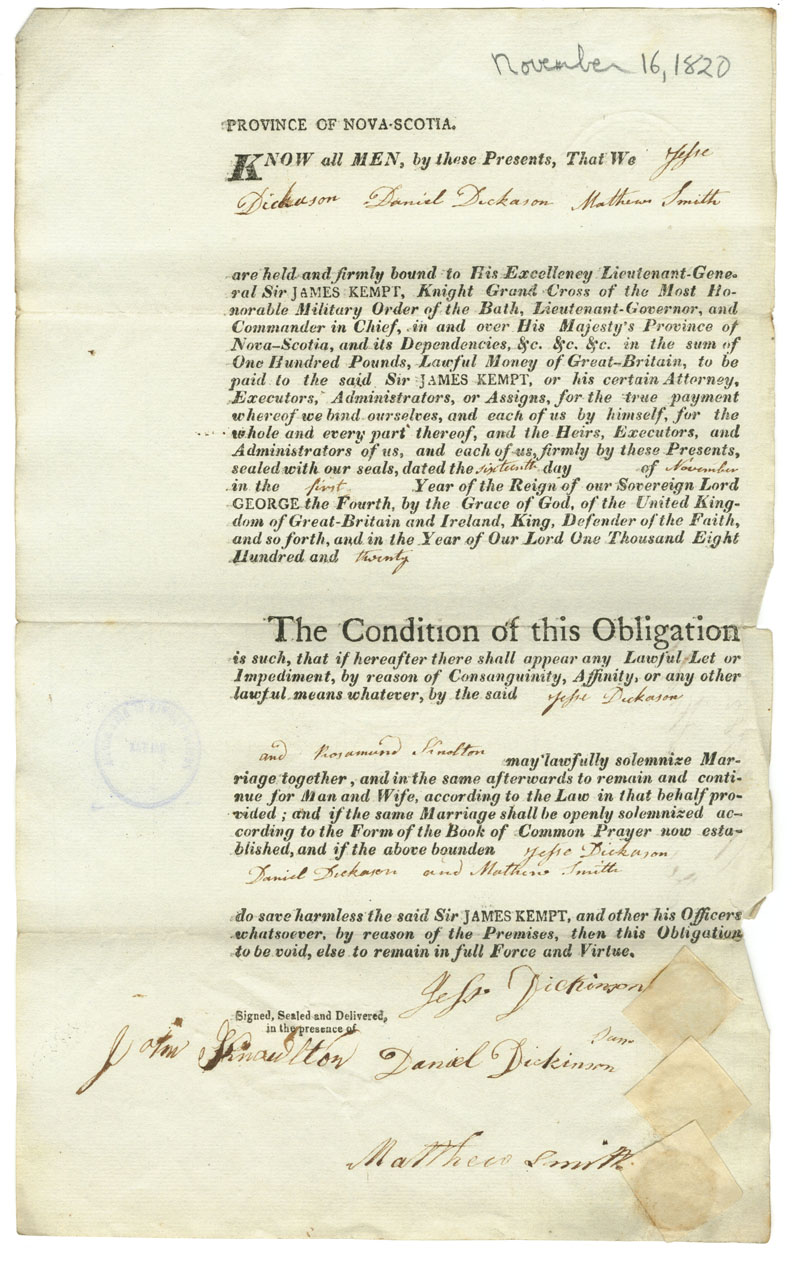 November 16, 1820
PROVINCE OF NOVA-SCOTIA.
KNOW all MEN, by these Presents, That We Jesse
Dickason Daniel Dickason Mathew Smith
are held and firmly bound to His Excelleney Lieutenant-Gene-
ral Sir JAMES KEMPT, Knight Grand Cross of the Most Ho-
norable Military Order of the Bath, Lieutenant-Governor, and
Commander in Chief, in and over His Majesty's Province of
Nova-Scotia, and its Dependencies, &c. &c. &c. in the sum of
One Hundred Pounds, Lawful Money of Great-Britain, to be
paid to the said Sir JAMES KEMPT, or his certain Attorney,
Executors, Administrators, or Assigns, for the true payment
whereof we bind ourselves, and each of us by himself, for the
whole and every part thereof, and the Heirs, Executors, and
Administrators of us, and each of us, firmly by these Presents,
sealed with our seals, dated the sixteenth day of November
in the first Year of the Reign of our Sovereign Lord
GEORGE the Fourth, by the Grace of God, of the United King-
dom of Great-Britain and Ireland, King, Defender of the Faith,
and so forth, and in the Year of Our Lord One Thousand Eight
Hundred and twenty
The Condition of this Obligation
is such, that if hereafter there shall appear any Lawful Let or
Impediment, by reason of Consanguinity, Affinity, or any other
lawful means whatever, by the said Jesse Dickason
and Rosamund Knolton may lawfully solemnize Mar-
riage together, and in the same afterwards to remain and conti-
nue for Man and Wife, according to the Law in that behalf pro-
vided; and if the same Marriage shall be openly solemnized ac-
cording to the Form of the Book of Common Prayer now esta-
blished, and if the above bounden Jesse Dickason
Daniel Dickason and Mathew Smith
do save harmless the said Sir JAMES KEMPT, and other his Officers
whatsoever, by reason of the Premises, then this Obligation
to be void, else to remain in full Force and Virtue.
Jesse Dickinson
Signed, Sealed and Delivered,
in the presence of
John Knowlton Daniel Dickinson
Matthew Smith